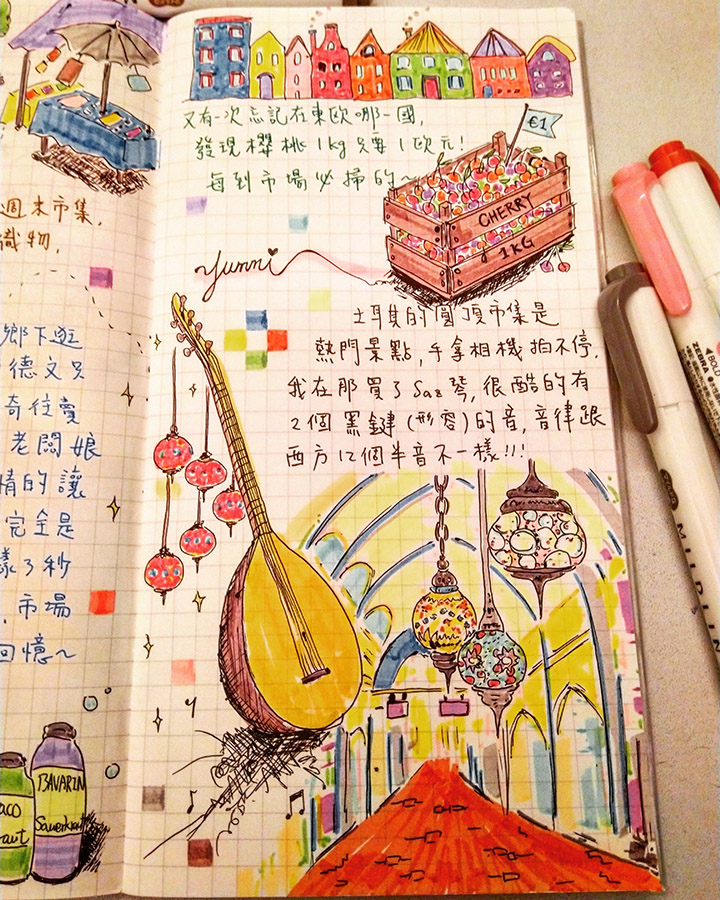 週末市集,
織物,
鄉下逛
德文只
奇往賣
老闆娘
情的讓
完全是
樣了秒
,市場
回憶～
BAVARIN
Sauerkraut
aco
raut
又有一次忘記在東歐哪一國,
發現櫻桃1kg只要1歐元!
每到市場必掃的～
€1
CHERRY
1KG
Yummi
土耳其的圓頂市集是
熱門景點,手拿相機拍不停.
我在那買了Saz琴,很酷的有
2個黑鍵(形容)的音,音律跟
西方12個半音不一樣!!!
ZEBRA
MILDLIN